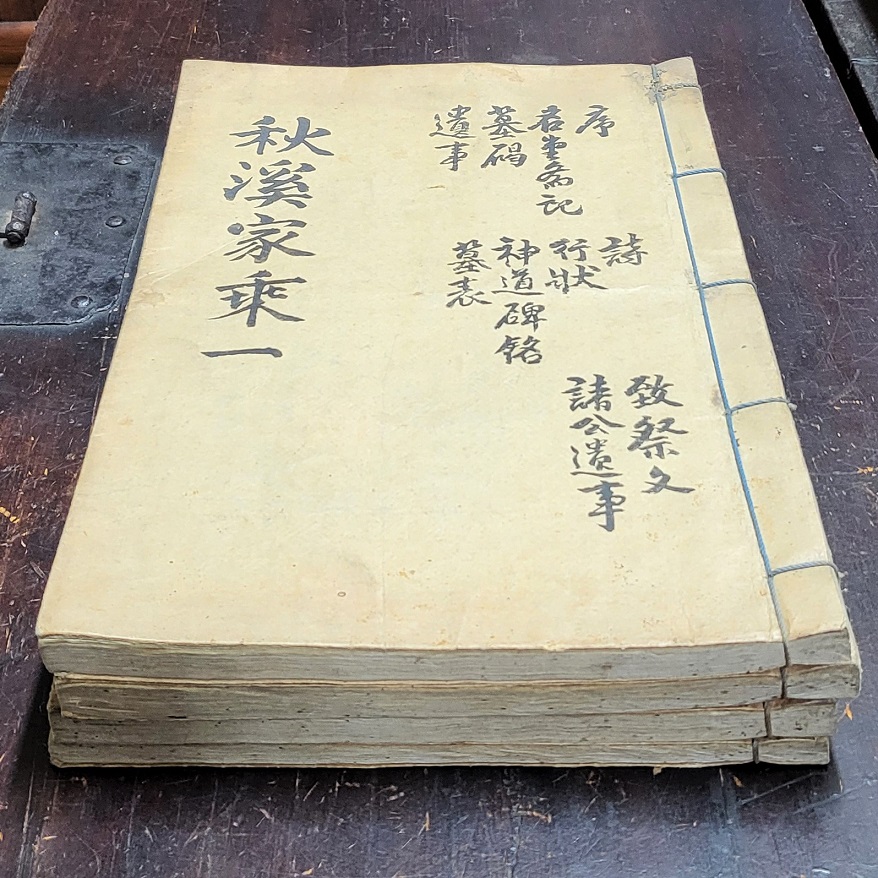 序 詩 致祭文
堂斎記 行狀 諸公遺事
墓碣 神道碑銘
遺事 墓表
秋溪家乘一